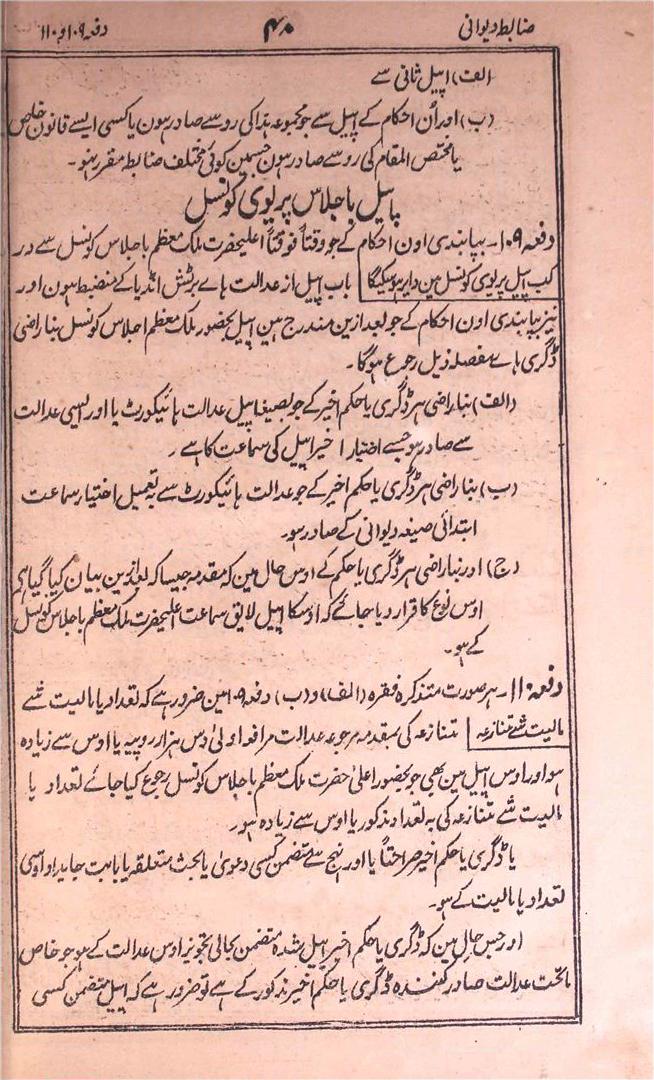 ضابطہ دیوانی ۴۰ دفعہ ۱۰۹و۱۱۰
(الف) اپیل ثانی سے
(ب) اور اُن احکام کے اپیل سے جو مجموعہ ہذا کی رو سے صادر ہون یا کسی ایسے قانون خاص
یا مختص المقام کی رو سے صادر ہون جسمین کوئی مختلف ضابطہ مقرر ہنو۔
اپیل باجلاس پریوی کونسل
دفعہ ۱۰۹۔ بپابندی اون احکام کے جو وقتاً فوقتاً اعلیحضرت ملک معظم باجلاس کونسل سے در
کب اپیل پریوی کونسل مین دایر ہو سکیگا باب اپیل از عدالت ہاے برٹش انڈیا کے منضبط ہون اور
نیز بپابندی اون احکام کے جو بعد ازین مندرج ہین اپیل بحضور ملک معظم اجلاس کونسل بناراضی
ڈگری ہاے مفصلہ ذیل رجوع ہوگا۔
(الف) بناراضی ہر ڈگری یا حکم اخیر کے جو بصیغہ اپیل عدالت ہائیکورٹ یا اور ایسی عدالت
سے صادر ہو جسے اختیار اخیر اپیل کی سماعت کا ہے۔
(ب) بناراضی ہر ڈگری یا حکم اخیر کے جو عدالت ہائیکورٹ سے بہ تعمیل اختیار سماعت
ابتدائی صیغہ دیوانی کے صادر ہو۔
(ج) اور بناراضی ہر ڈگری یا حکم کے اوس حال مین کہ مقدمہ جیسا کہ بعد ازین بیان کیا گیا ہی
اوس نوع کا قرار دیا جائے کہ اوسکا اپیل لایق سماعت اعلیحضرت ملک معظم باجلاس کونسل
کے ہو۔
دفعہ ۱۱۰۔ ہر صورت متذکرہ فقرہ (الف) و (ب) دفعہ ۱۰۹ مین ضرور ہے کہ تعداد یا مالیت شے
مالیت شے متنازعہ متنازعہ کی بمقدمہ مرجوعہ عدالت مرافعہ اولیٰ دس ہزار روپیہ یا اوس سے زیادہ
ہو اور اوس اپیل مین بھی جو بحضور اعلیٰ حضرت ملک معظم باجلاس کونسل رجوع کیا جائے تعداد یا
مالیت شے متنازعہ کی بہ تعداد مذکور یا اوس سے زیادہ ہو۔
یا ڈگری یا حکم اخیر صراحتاً یا اور نہج سے متضمن کسی دعویٰ یا بحث متعلقہ یا بابت جایداد اوسی
تعداد یا مالیت کے ہو۔
اور جس حال مین کہ ڈگری یا حکم اخیر اپیل شدہ متضمن بحالی تجویز اوس عدالت کے ہو جو خاص
ماتحت عدالت صادر کنندہ ڈگری یا حکم اخیر مذکور کے ہے تو ضرور ہے کہ اپیل متضمن کسی